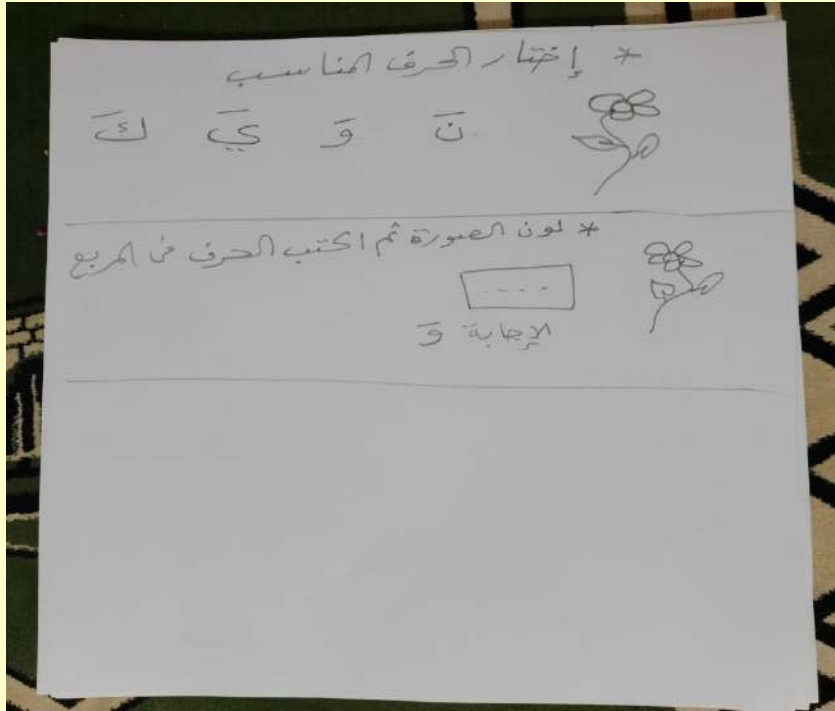 * إختار الحرف المناسب
نَ وَ يَ كَ
* لون الصورة ثم اكتب الحرف في المربع
....
الإجابة وَ